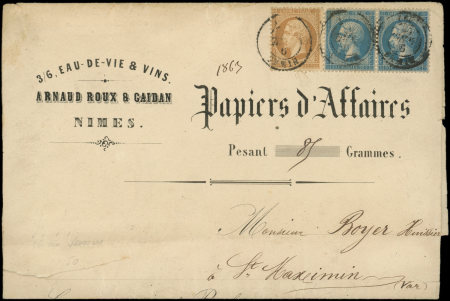 3/6, EAU-DE-VIE & VINS.
ARNAUD ROUX & GAIDAN
NIMES.
1863
Papiers d'Affaires
Pesant 85 Grammes.
Monsieur Boyer Huissier
à St. Maximin
(Var)